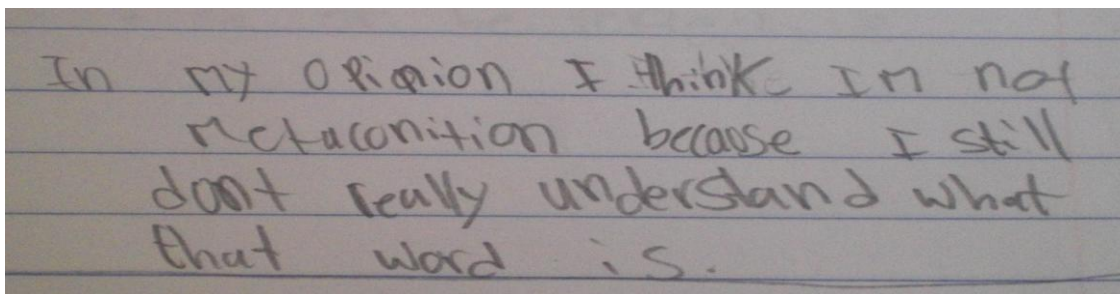 In my opinion I think Im not
metaconition because I still
dont really understand what
that word is.